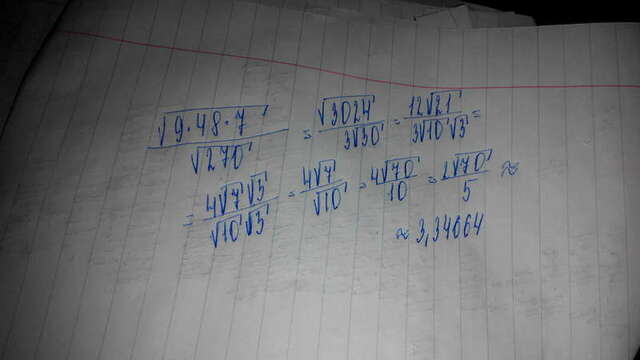 √(9·48·7)/√270 = √3024/3√30 = 12√21/3√10√3 =
= 4√7√3/√10√3 = 4√7/√10 = 4√70/10 = 2√70/5 ≈
≈ 3,34664